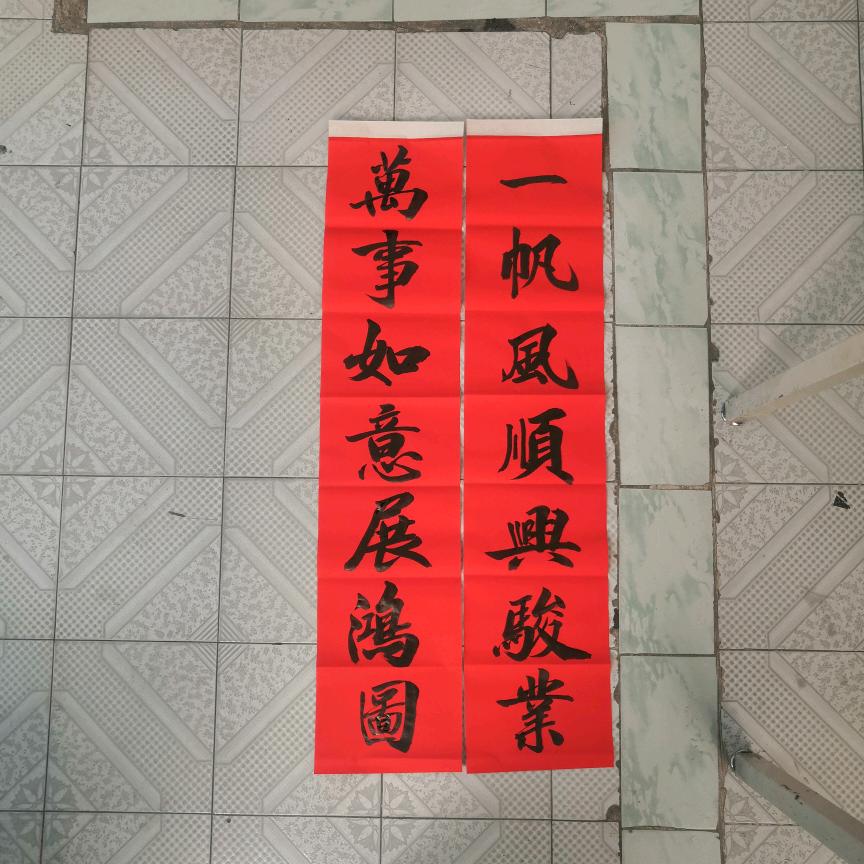 一帆風順興駿業
萬事如意展鴻圖